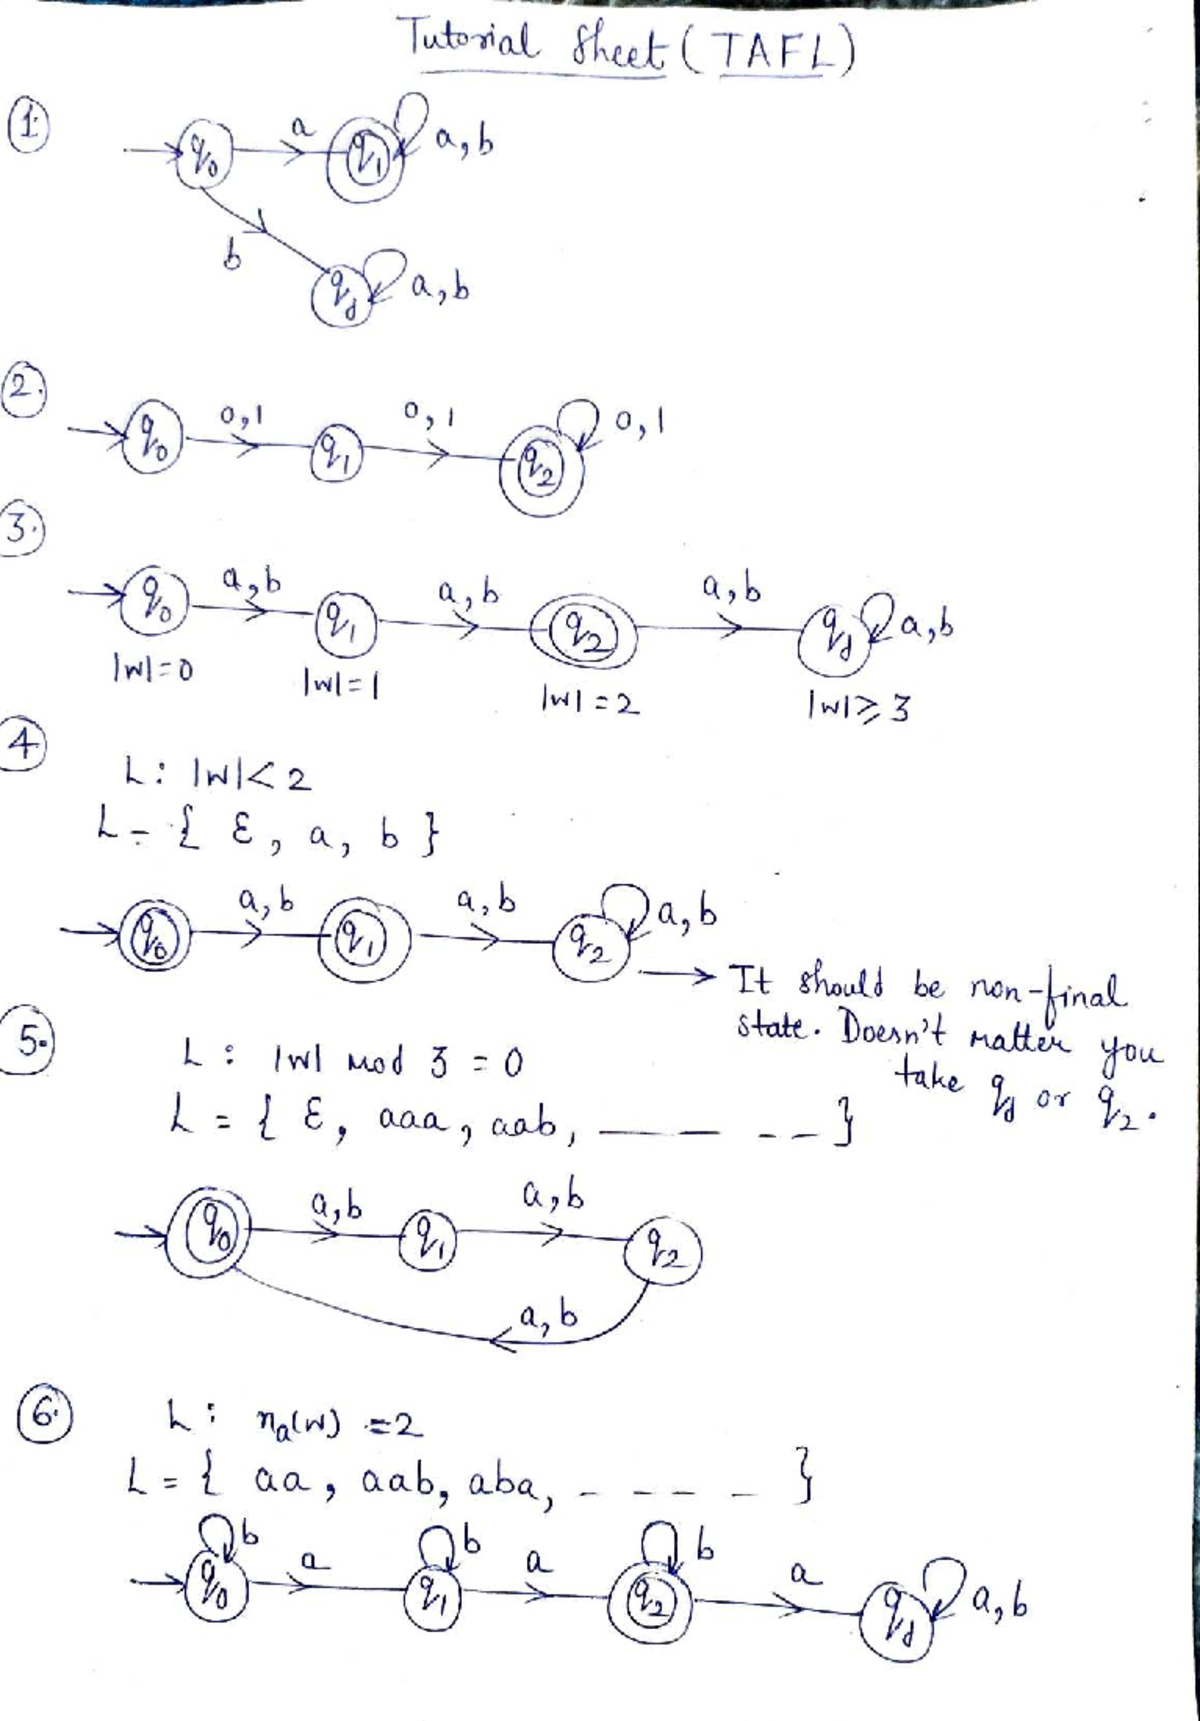 Tutorial Sheet (TAFL)
1.
q0 a q1 a, b
b
qd a, b
2.
q0 0,1 q1 0,1 q2 0,1
3.
q0 a,b q1 a,b q2 a,b qd a,b
|w|=0 |w|=1 |w|=2 |w|≥3
4
L: |w|<2
L = { ε, a, b }
q0 a,b q1 a,b q2 a,b
→ It should be non-final
state. Doesn't matter you
take qd or q2.
5.
L : |w| mod 3 = 0
L = { ε, aaa, aab, — — - - }
q0 a,b q1 a,b q2
a,b
6.
L : na(w) = 2
L = { aa, aab, aba, - - - - }
b b b
q0 a q1 a q2 a qd a,b